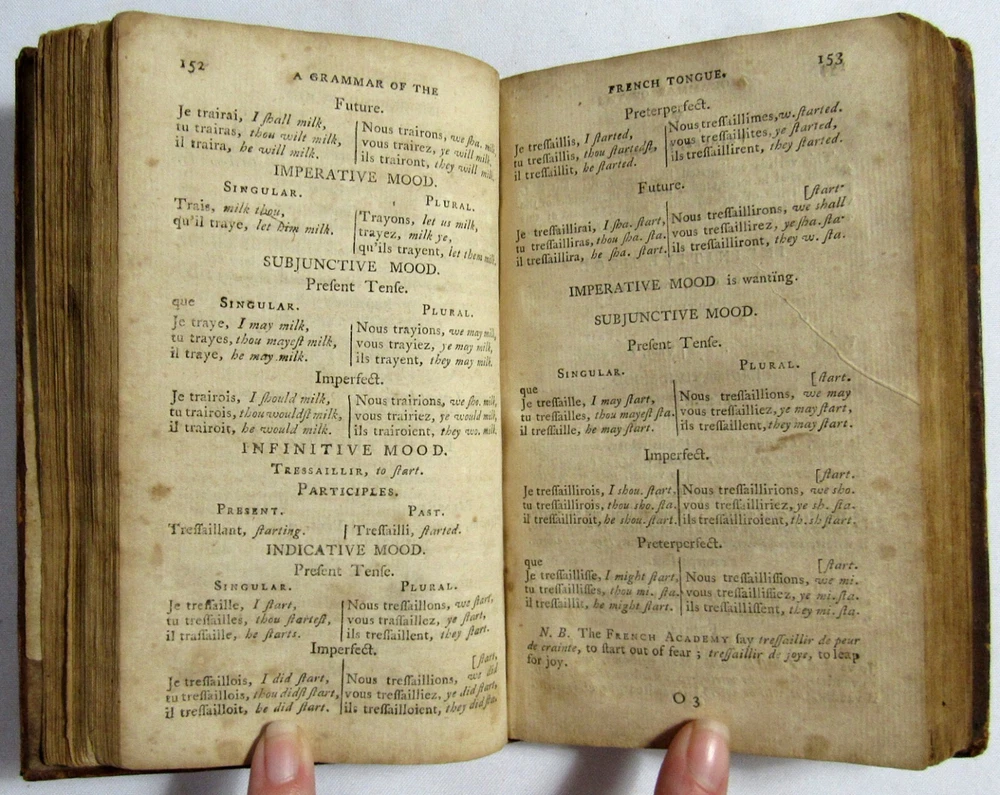 152
A GRAMMAR OF THE
Future.
Je trairai, I ſhall milk,
tu trairas, thou wilt milk,
il traira, he will milk.
Nous trairons, we ſha. milk,
vous trairez, ye will milk,
ils trairont, they will milk.
IMPERATIVE MOOD.
SINGULAR.
PLURAL.
Trais, milk thou,
qu'il traye, let him milk.
Trayons, let us milk,
trayez, milk ye,
qu'ils trayent, let them milk.
SUBJUNCTIVE MOOD.
Preſent Tenſe.
que SINGULAR.
PLURAL.
Je traye, I may milk,
tu trayes, thou mayeſt milk,
il traye, he may milk.
Nous trayions, we may milk,
vous trayiez, ye may milk,
ils trayent, they may milk.
Imperfect.
Je trairois, I ſhould milk,
tu trairois, thou wouldſt milk,
il trairoit, he would milk.
Nous trairions, we ſho. milk,
vous trairiez, ye would milk,
ils trairoient, they wo. milk.
INFINITIVE MOOD.
TRESSAILLIR, to ſtart.
PARTICIPLES.
PRESENT.
PAST.
Treſſaillant, ſtarting.
Treſſailli, ſtarted.
INDICATIVE MOOD.
Preſent Tenſe.
SINGULAR.
PLURAL.
Je treſſaille, I ſtart,
tu treſſailles, thou ſtarteſt,
il traſſaille, he ſtarts.
Nous treſſaillons, we ſtart,
vous traſſaillez, ye ſtart,
ils treſſaillent, they ſtart.
Imperfect.
[ſtart,
Je treſſaillois, I did ſtart,
tu treſſaillois, thou didſt ſtart,
il treſſailloit, he did ſtart.
Nous treſſaillions, we did
vous treſſailliez, ye did ſtart,
ils treſſailloient, they did ſta.
153
FRENCH TONGUE.
Preterperfect.
Je treſſaillis, I ſtarted,
tu treſſaillis, thou ſtartedſt,
il treſſaillit, he ſtarted.
Nous treſſaillimes, w. ſtarted.
vous treſſaillites, ye ſtarted,
ils treſſaillirent, they ſtarted.
Future.
[ſtart·
Je treſſaillirai, I ſha. ſtart,
tu treſſailliras, thou ſha. ſta.
il treſſaillira, he ſha. ſtart.
Nous treſſaillirons, we ſhall
vous treſſaillirez, ye ſha. ſta·
ils treſſailliront, they w. ſta.
IMPERATIVE MOOD is wanting.
SUBJUNCTIVE MOOD.
Preſent Tenſe.
SINGULAR.
PLURAL.
que
[ſtart.
Je treſſaille, I may ſtart,
tu treſſailles, thou mayeſt ſta.
il treſſaille, he may ſtart.
Nous treſſaillions, we may
vous treſſailliez, ye may ſtart,
ils treſſaillent, they may ſtart.
Imperfect.
[ſtart.
Je treſſaillirois, I ſhou. ſtart,
tu treſſaillirois, thou ſho. ſta.
il treſſailliroit, he ſhou. ſtart.
Nous treſſaillirions, we ſho.
vous treſſailliriez, ye ſh. ſta.
ils treſſailliroient, th. ſh ſtart.
Preterperfect.
que
[ſtart.
Je treſſailliſſe, I might ſtart,
tu treſſailliſſes, thou mi. ſta.
il treſſaillit, he might ſtart.
Nous treſſailliſſions, we mi.
vous treſſailliſſiez, ye mi. ſta.
ils treſſailliſſent, they mi. ſta.
N. B. The FRENCH ACADEMY ſay treſſaillir de peur
de crainte, to ſtart out of fear ; treſſaillir de joye, to leap
for joy.
O 3